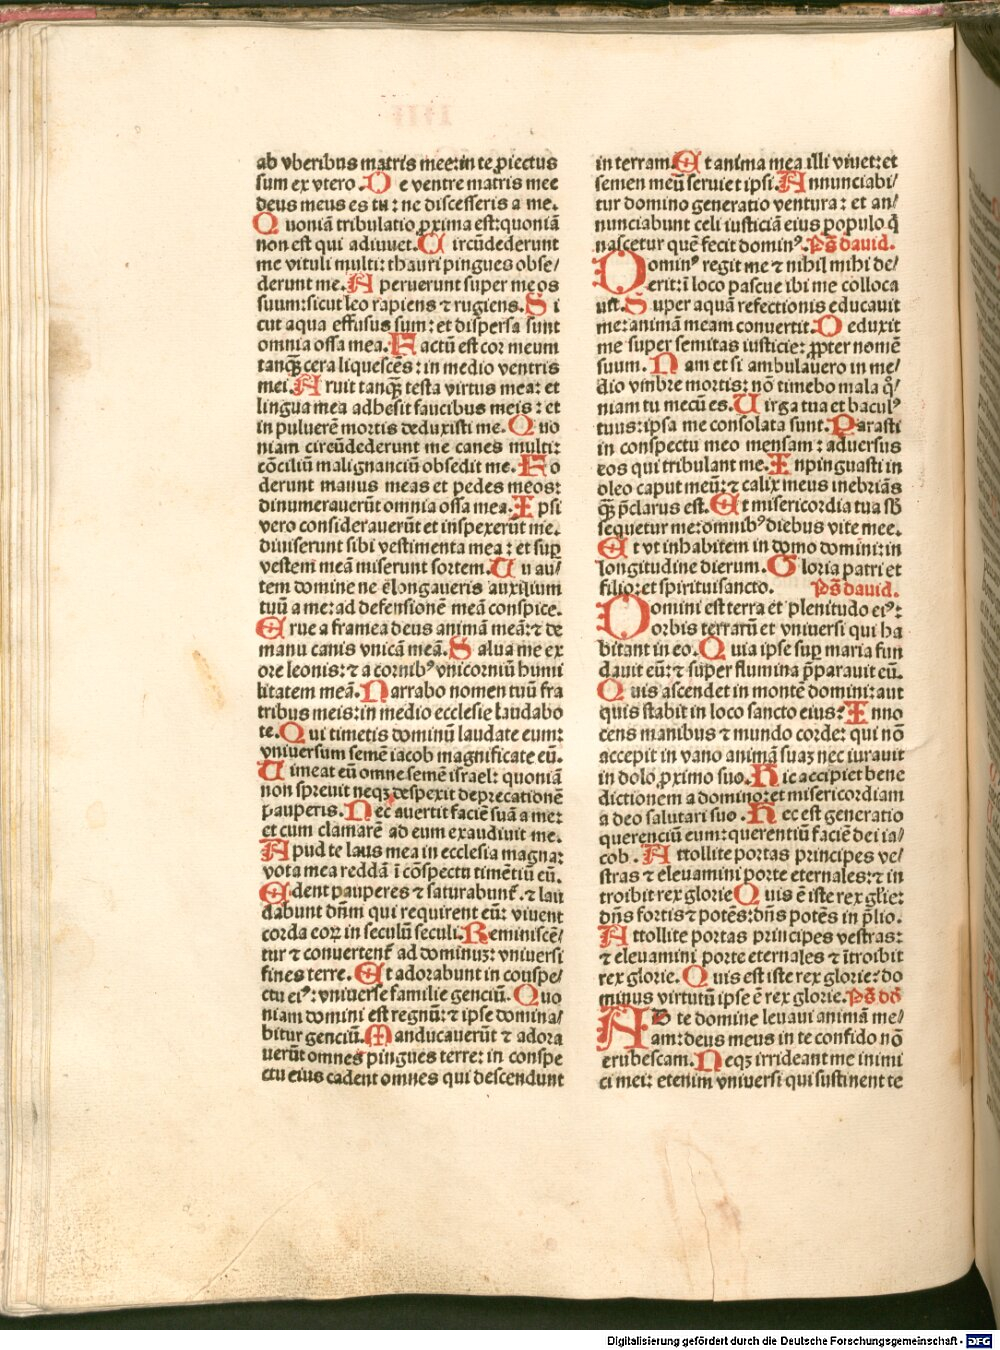 ab vberibus matris mee: in te ꝓiectus
sum ex vtero. De ventre matris mee
deus meus es tu: ne discesseris a me.
Quoniā tribulatio ꝓxima est: quoniā
non est qui adiuuet. Circūdederunt
me vituli multi: thauri pingues obse⸗
derunt me. Aperuerunt super me os
suum: sicut leo rapiens ⁊ rugiens. Si
cut aqua effusus sum: et dispersa sunt
omnia ossa mea. Factū est cor meum
tanqȝ cera liquescēs: in medio ventris
mei. Aruit tanqȝ testa virtus mea: et
lingua mea adhesit faucibus meis: et
in puluerē mortis deduxisti me. Quo
niam circūdederunt me canes multi:
cōciliū malignanciū obsedit me. Fo
derunt manus meas et pedes meos:
dinumerauerūt omnia ossa mea. Ipsi
vero considerauerūt et inspexerūt me.
diuiserunt sibi vestimenta mea: et suꝑ
vestem meā miserunt sortem. Tu au⸗
tem domine ne elongaueris auxilium
tuū a me: ad defensionē meā conspice.
Erue a framea deus animā meā: ⁊ de
manu canis vnicā meā. Salua me ex
ore leonis: ⁊ a cornibꝰ vnicorniū humi
litatem meā. Narrabo nomen tuū fra
tribus meis: in medio ecclesie laudabo
te. Qui timetis dominū laudate eum:
vniuersum semē iacob magnificate eū.
Timeat eū omne semē israel: quoniā
non spreuit neqȝ despexit deprecationē
pauperis. Nec auertit faciē suā a me:
et cum clamarē ad eum exaudiuit me.
Apud te laus mea in ecclesia magna:
vota mea reddā ī cōspectu timētiū eū.
Edent pauperes ⁊ saturabunt᷑. ⁊ lau
dabunt dn̄m qui requirent eū: viuent
corda eoꝝ in seculū seculi. Reminiscē⸗
tur ⁊ conuertent᷑ ad dominuȝ: vniuersi
fines terre. Et adorabunt in conspe⸗
ctu eiꝰ: vniuerse familie genciū. Quo
niam domini est regnū: ⁊ ipse domina⸗
bitur genciū. Manducauerūt ⁊ adora
uerūt omnes pingues terre: in conspe
ctu eius cadent omnes qui descendunt
in terram. Et anima mea illi viuet: et
semen meū seruiet ipsi. Annunciabi⸗
tur domino generatio ventura: et an⸗
nunciabunt celi iusticiā eius populo q̄
nascetur quē fecit dominꝰ. Ps̄ dauid.
Dominꝰ regit me ⁊ nihil mihi de⸗
erit: ī loco pascue ibi me colloca
uit. Super aquā refectionis educauit
me: animā meam conuertit. Deduxit
me super semitas iusticie: ꝓpter nomē
suum. Nam et si ambulauero in me⸗
dio vmbre mortis: nō timebo mala qͦ⸗
niam tu mecū es. Uirga tua et baculꝰ
tuus: ipsa me consolata sunt. Parasti
in conspectu meo mensam: aduersus
eos qui tribulant me. Inpinguasti in
oleo caput meū: ⁊ calix meus inebriās
qȝ p̄clarus est. Et misericordia tua sb̄
sequetur me: omnibꝰ diebus vite mee.
Et vt inhabitem in domo domini: in
longitudine dierum. Gloria patri et
filio: et spiritui sancto. Ps̄ dauid.
Domini est terra et plenitudo eiꝰ:
orbis terrarū et vniuersi qui ha
bitant in eo. Quia ipse suꝑ maria fun
dauit eū: ⁊ super flumina p̄parauit eū.
Quis ascendet in montē domini: aut
quis stabit in loco sancto eius? Inno
cens manibus ⁊ mundo corde: qui nō
accepit in vano animā suaȝ nec iurauit
in dolo ꝓximo suo. Hic accipiet bene
dictionem a domino: et misericordiam
a deo salutari suo. Hec est generatio
querenciū eum: querentiū faciē dei ia⸗
cob. Attollite portas principes ve⸗
stras ⁊ eleuamini porte eternales: ⁊ in
troibit rex glorie Quis ē iste rex glīe:
dn̄s fortis ⁊ potēs: dn̄s potēs in p̄lio.
Attollite portas principes vestras:
⁊ eleuamini porte eternales ⁊ ītroibit
rex glorie. Quis est iste rex glorie: do
minus virtutū ipse ē rex glorie. Ps̄ dd̄
AD te domine leuaui animā me⸗
am: deus meus in te confido nō
erubescam. Neqȝ irrideant me inimi
ci mei: etenim vniuersi qui sustinent te
Digitalisierung gefördert durch die Deutsche Forschungsgemeinschaft - DFG